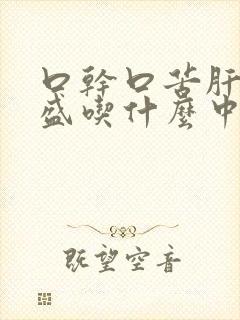 口幹口苦肝
盛喫什麼中
既望空音